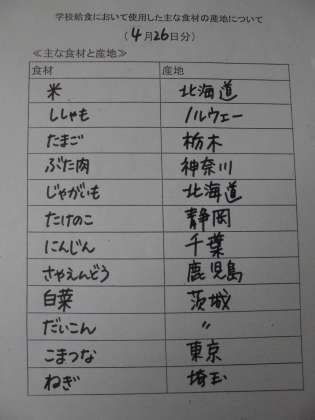 学校給食において使用した主な食材の産地について
(4月26日分)
≪主な食材と産地≫
食材 産地
米 北海道
ししゃも ノルウェー
たまご 栃木
ぶた肉 神奈川
じゃがいも 北海道
たけのこ 静岡
にんじん 千葉
さやえんどう 鹿児島
白菜 茨城
だいこん 〃
こまつな 東京
ねぎ 埼玉